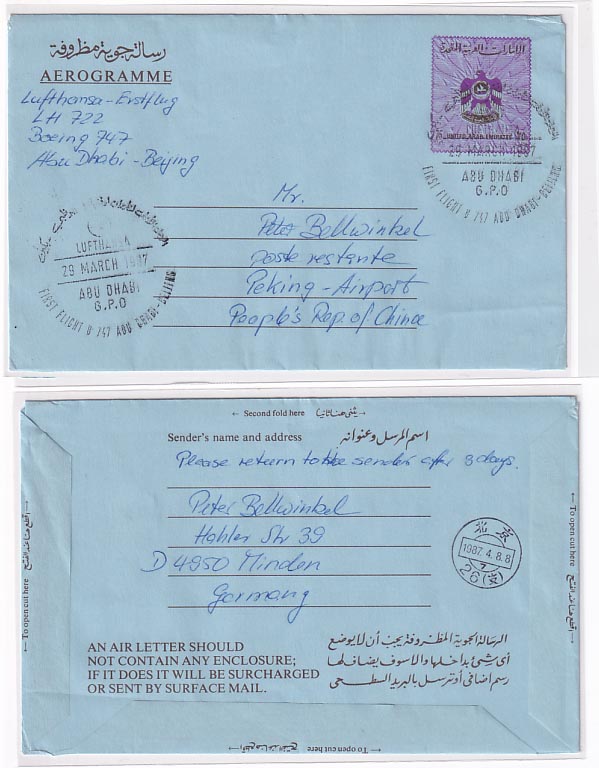 رسالة جوية مظروفة
AEROGRAMME
Lufthansa-Erstflug
LH 722
Boeing 747
Abu Dhabi - Beijing
الامارات العربية المتحدة
UNITED ARAB EMIRATES
29 MARCH 1987
ABU DHABI
G.P.O
FIRST FLIGHT B 747 ABU DHABI-BEIJING
LUFTHANSA
29 MARCH 1987
ABU DHABI
G.P.O
FIRST FLIGHT B 747 ABU DHABI-BEIJING
Mr.
Peter Bellwinkel
poste restante
Peking - Airport
People's Rep. of China
← Second fold here يثنى هنا ثانيا →
Sender's name and address اسم المرسل وعنوانه
Please return to the sender after 8 days.
Peter Bellwinkel
Hahler Str 39
D 4950 Minden
Germany
北京
1987.4.8.8
7
26(支)
AN AIR LETTER SHOULD
NOT CONTAIN ANY ENCLOSURE;
IF IT DOES IT WILL BE SURCHARGED
OR SENT BY SURFACE MAIL.
الرسالة الجوية المظروفة يجب أن لا يوضع
أي شيء بداخلها والا سوف يضاف لها
رسم اضافي أو ترسل بالبريد السطحي
← To open cut here اقطع هنا عند الفتح →
← To open cut here اقطع هنا عند الفتح →
← To open cut here اقطع هنا عند الفتح →